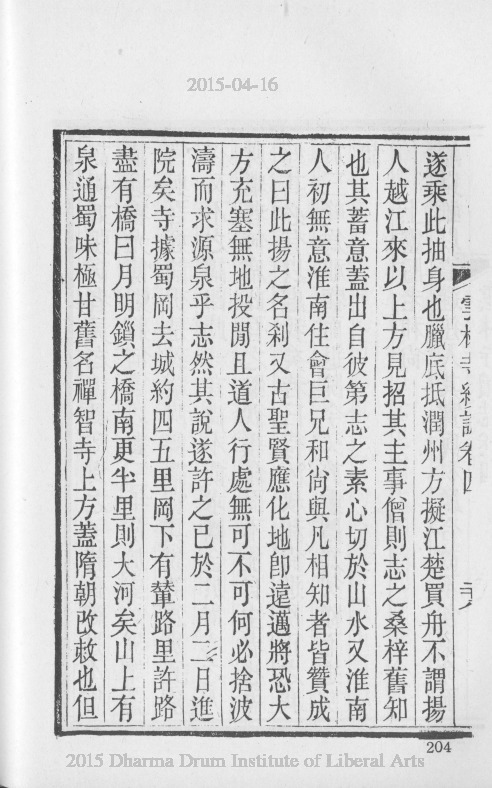 2015-04-16
雲林寺續誌卷四
遂乘此抽身也臘底抵潤州方擬江楚買舟不謂揚
人越江來以上方見招其主事僧則志之桑梓舊知
也其蓄意蓋出自彼第志之素心切於山水又淮南
人初無意淮南住會巨兄和尙與凡相知者皆贊成
之曰此揚之名刹又古聖賢應化地卽遠邁將恐大
方充塞無地投閒且道人行處無可不可何必捨波
濤而求源泉乎志然其說遂許之已於二月二日進
院矣寺據蜀岡去城約四五里岡下有輦路里許路
盡有橋曰月明鎖之橋南更半里則大河矣山上有
泉通蜀味極甘舊名禪智寺上方蓋隋朝改敕也但
204
2015 Dharma Drum Institute of Liberal Arts